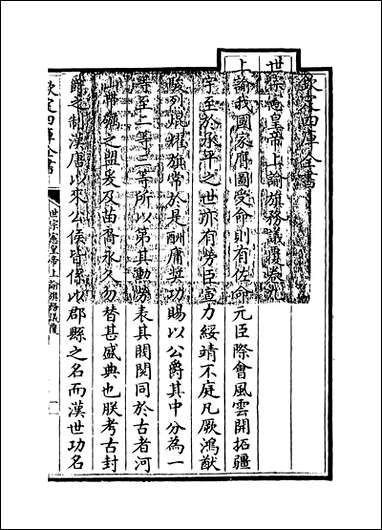 欽定四庫全書
世宗憲皇帝上諭旗務議覆卷九
上諭我國家膺圖受命則有佐命元臣際會風雲開拓疆
宇至於承平之世亦有勞臣宣力綏靖不庭凡厥鴻猷
駿烈焜耀旗常於是酬庸奬功賜以公爵其中分為一
等至二等三等所以第其勳勞表其閥閱同於古者河
山帶礪之盟爰及苗裔永久勿替甚盛典也朕考古封
爵之制漢唐以來公侯皆係以郡縣之名而漢世功名
欽定四庫全書
世宗憲皇帝上諭旗務議覆
一